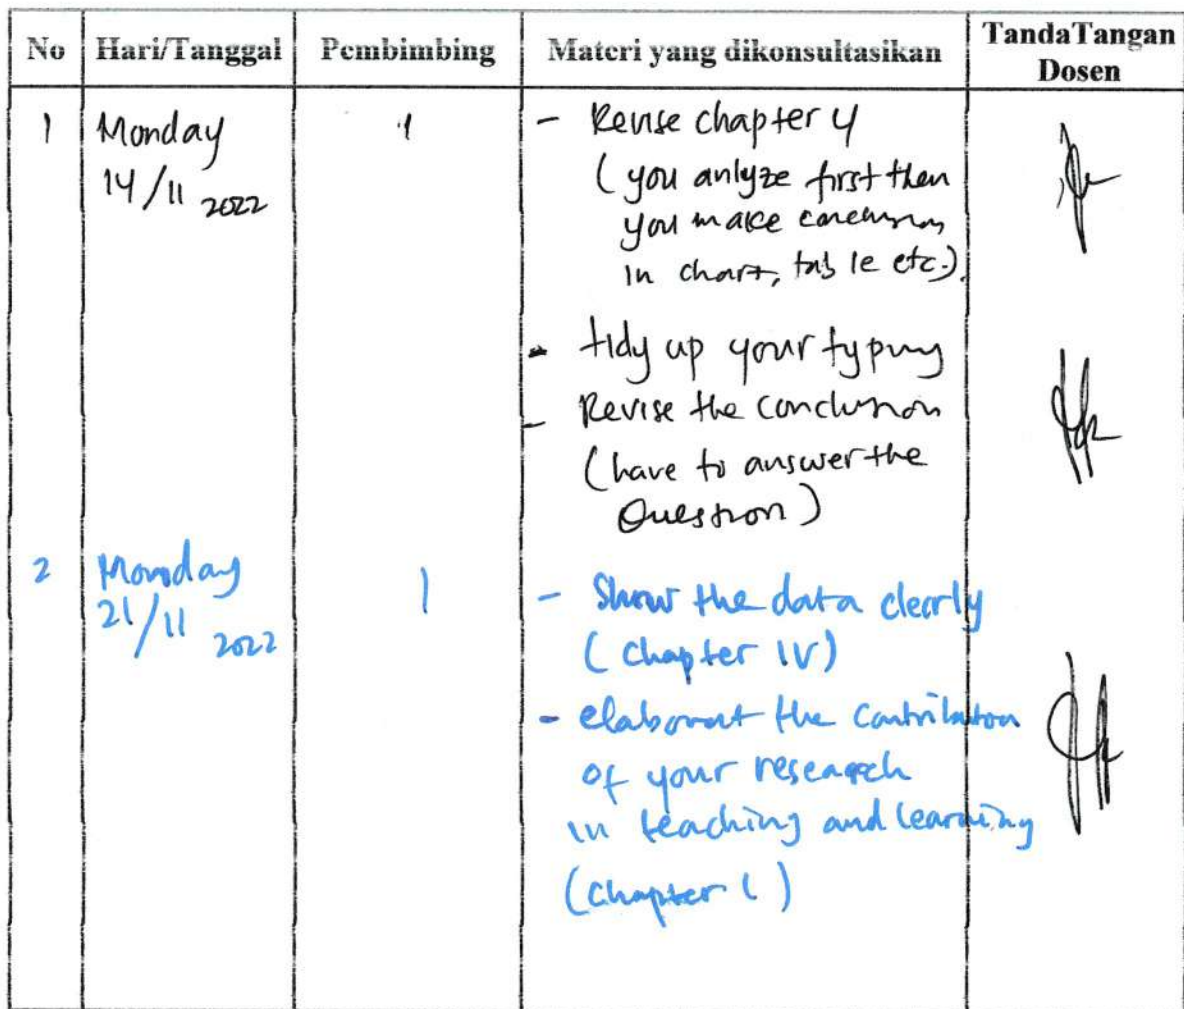 No Hari/Tanggal Pembimbing Materi yang dikonsultasikan TandaTangan Dosen
1 Monday 1 - Revise chapter 4
14/11 2022 (you anlyze first then
you make conclusion
in chart, table etc.)
- tidy up your typing
- Revise the conclusion
(have to answer the
Question)
2 Monday 1 - Show the data clearly
21/11 2022 (Chapter IV)
- elaborat the contribution
of your research
in teaching and learning
(Chapter I)